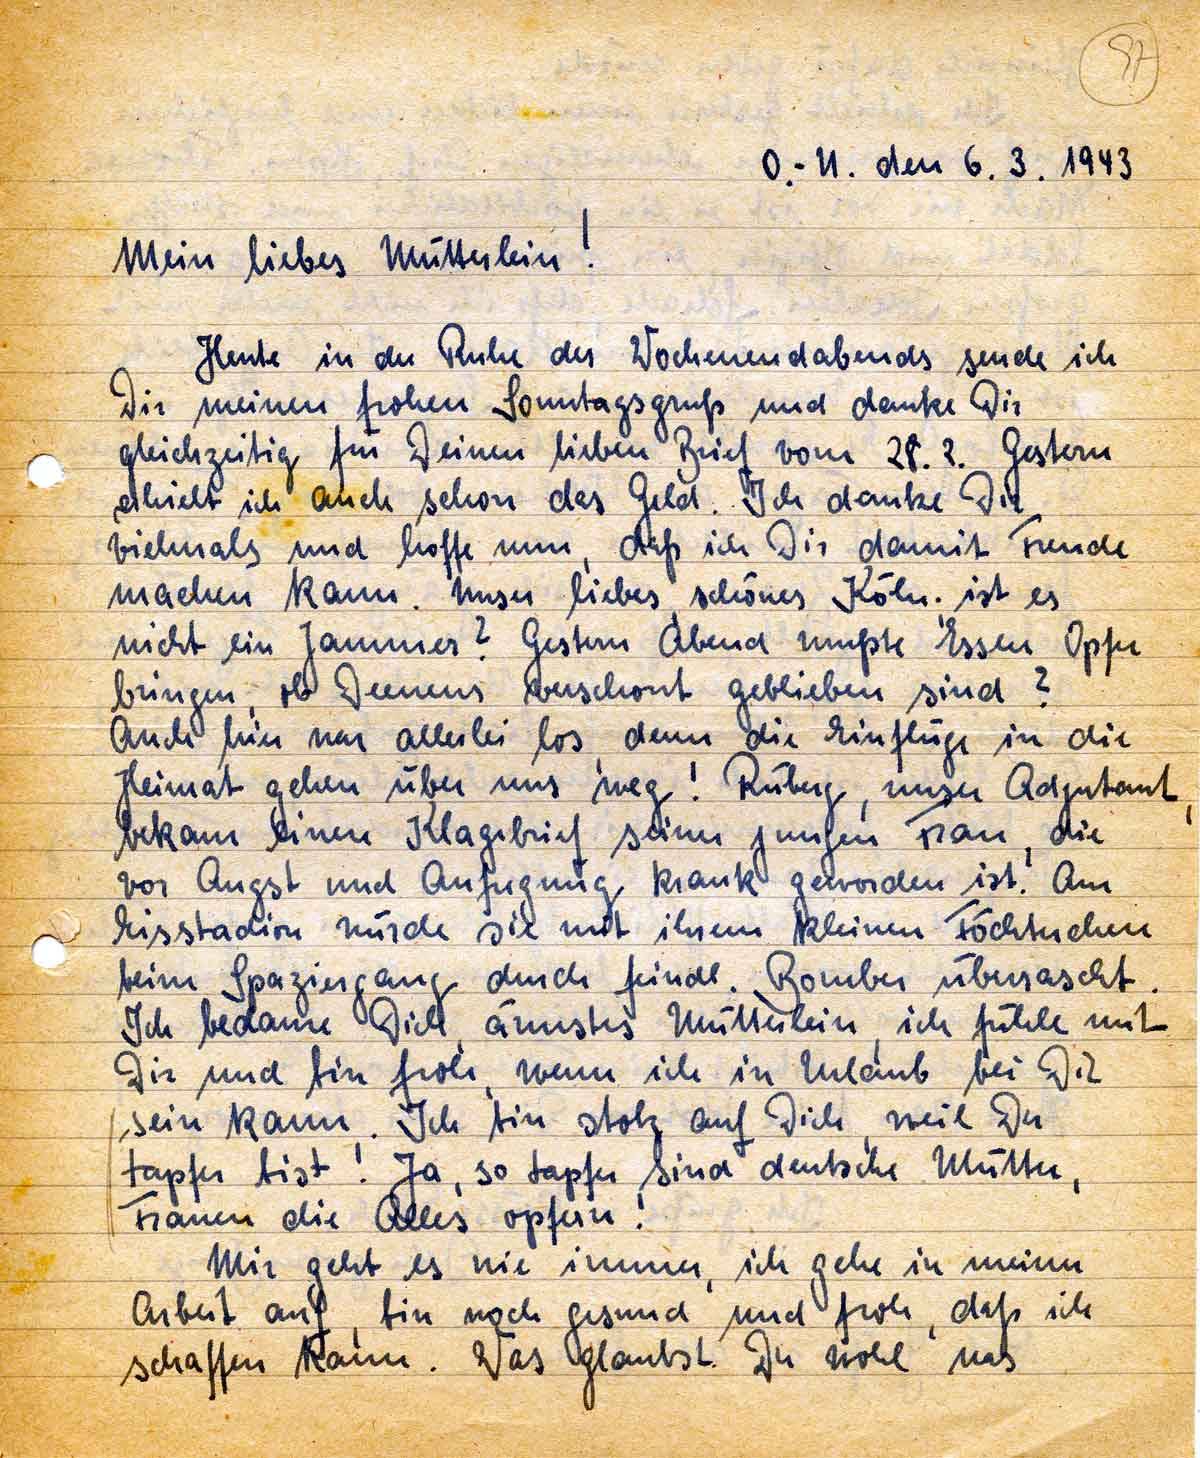 97
O.-U. den 6. 3. 1943
Mein liebes Mütterlein!
Heute in der Ruhe des Wochenendabends sende ich
Dir meinen frohen Sonntagsgruß und danke Dir
gleichzeitig für Deinen lieben Brief vom 28. 2. Gestern
erhielt ich auch schon das Geld. Ich danke Dir
vielmals und hoffe nun, daß ich Dir damit Freude
machen kann. Unser liebes, schönes Köln, ist es
nicht ein Jammer? Gestern Abend mußte Essen Opfer
bringen, ob verschont geblieben sind?
Auch hier war allerlei los, denn die Einflüge in die
Heimat gehen über uns weg! Rüberg, unser Adjutant,
bekam einen Klagebrief seiner jungen Frau, die
vor Angst und Aufregung krank geworden ist! Am
Eisstadion wurde sie mit ihrem kleinen Töchterchen
beim Spaziergang durch feindl. Bomber überrascht.
Ich bedaure Dich, ärmstes Mütterlein, ich fühle mit
Dir und bin froh, wenn ich in Urlaub bei Dir
sein kann. Ich bin stolz auf Dich, weil Du
tapfer bist! Ja, so tapfer sind deutsche Mütter,
Frauen die Alles opfern!
Mir geht es wie immer, ich gehe in meiner
Arbeit auf, bin noch gesund und froh, daß ich
schaffen kann. Was glaubst Du wohl was